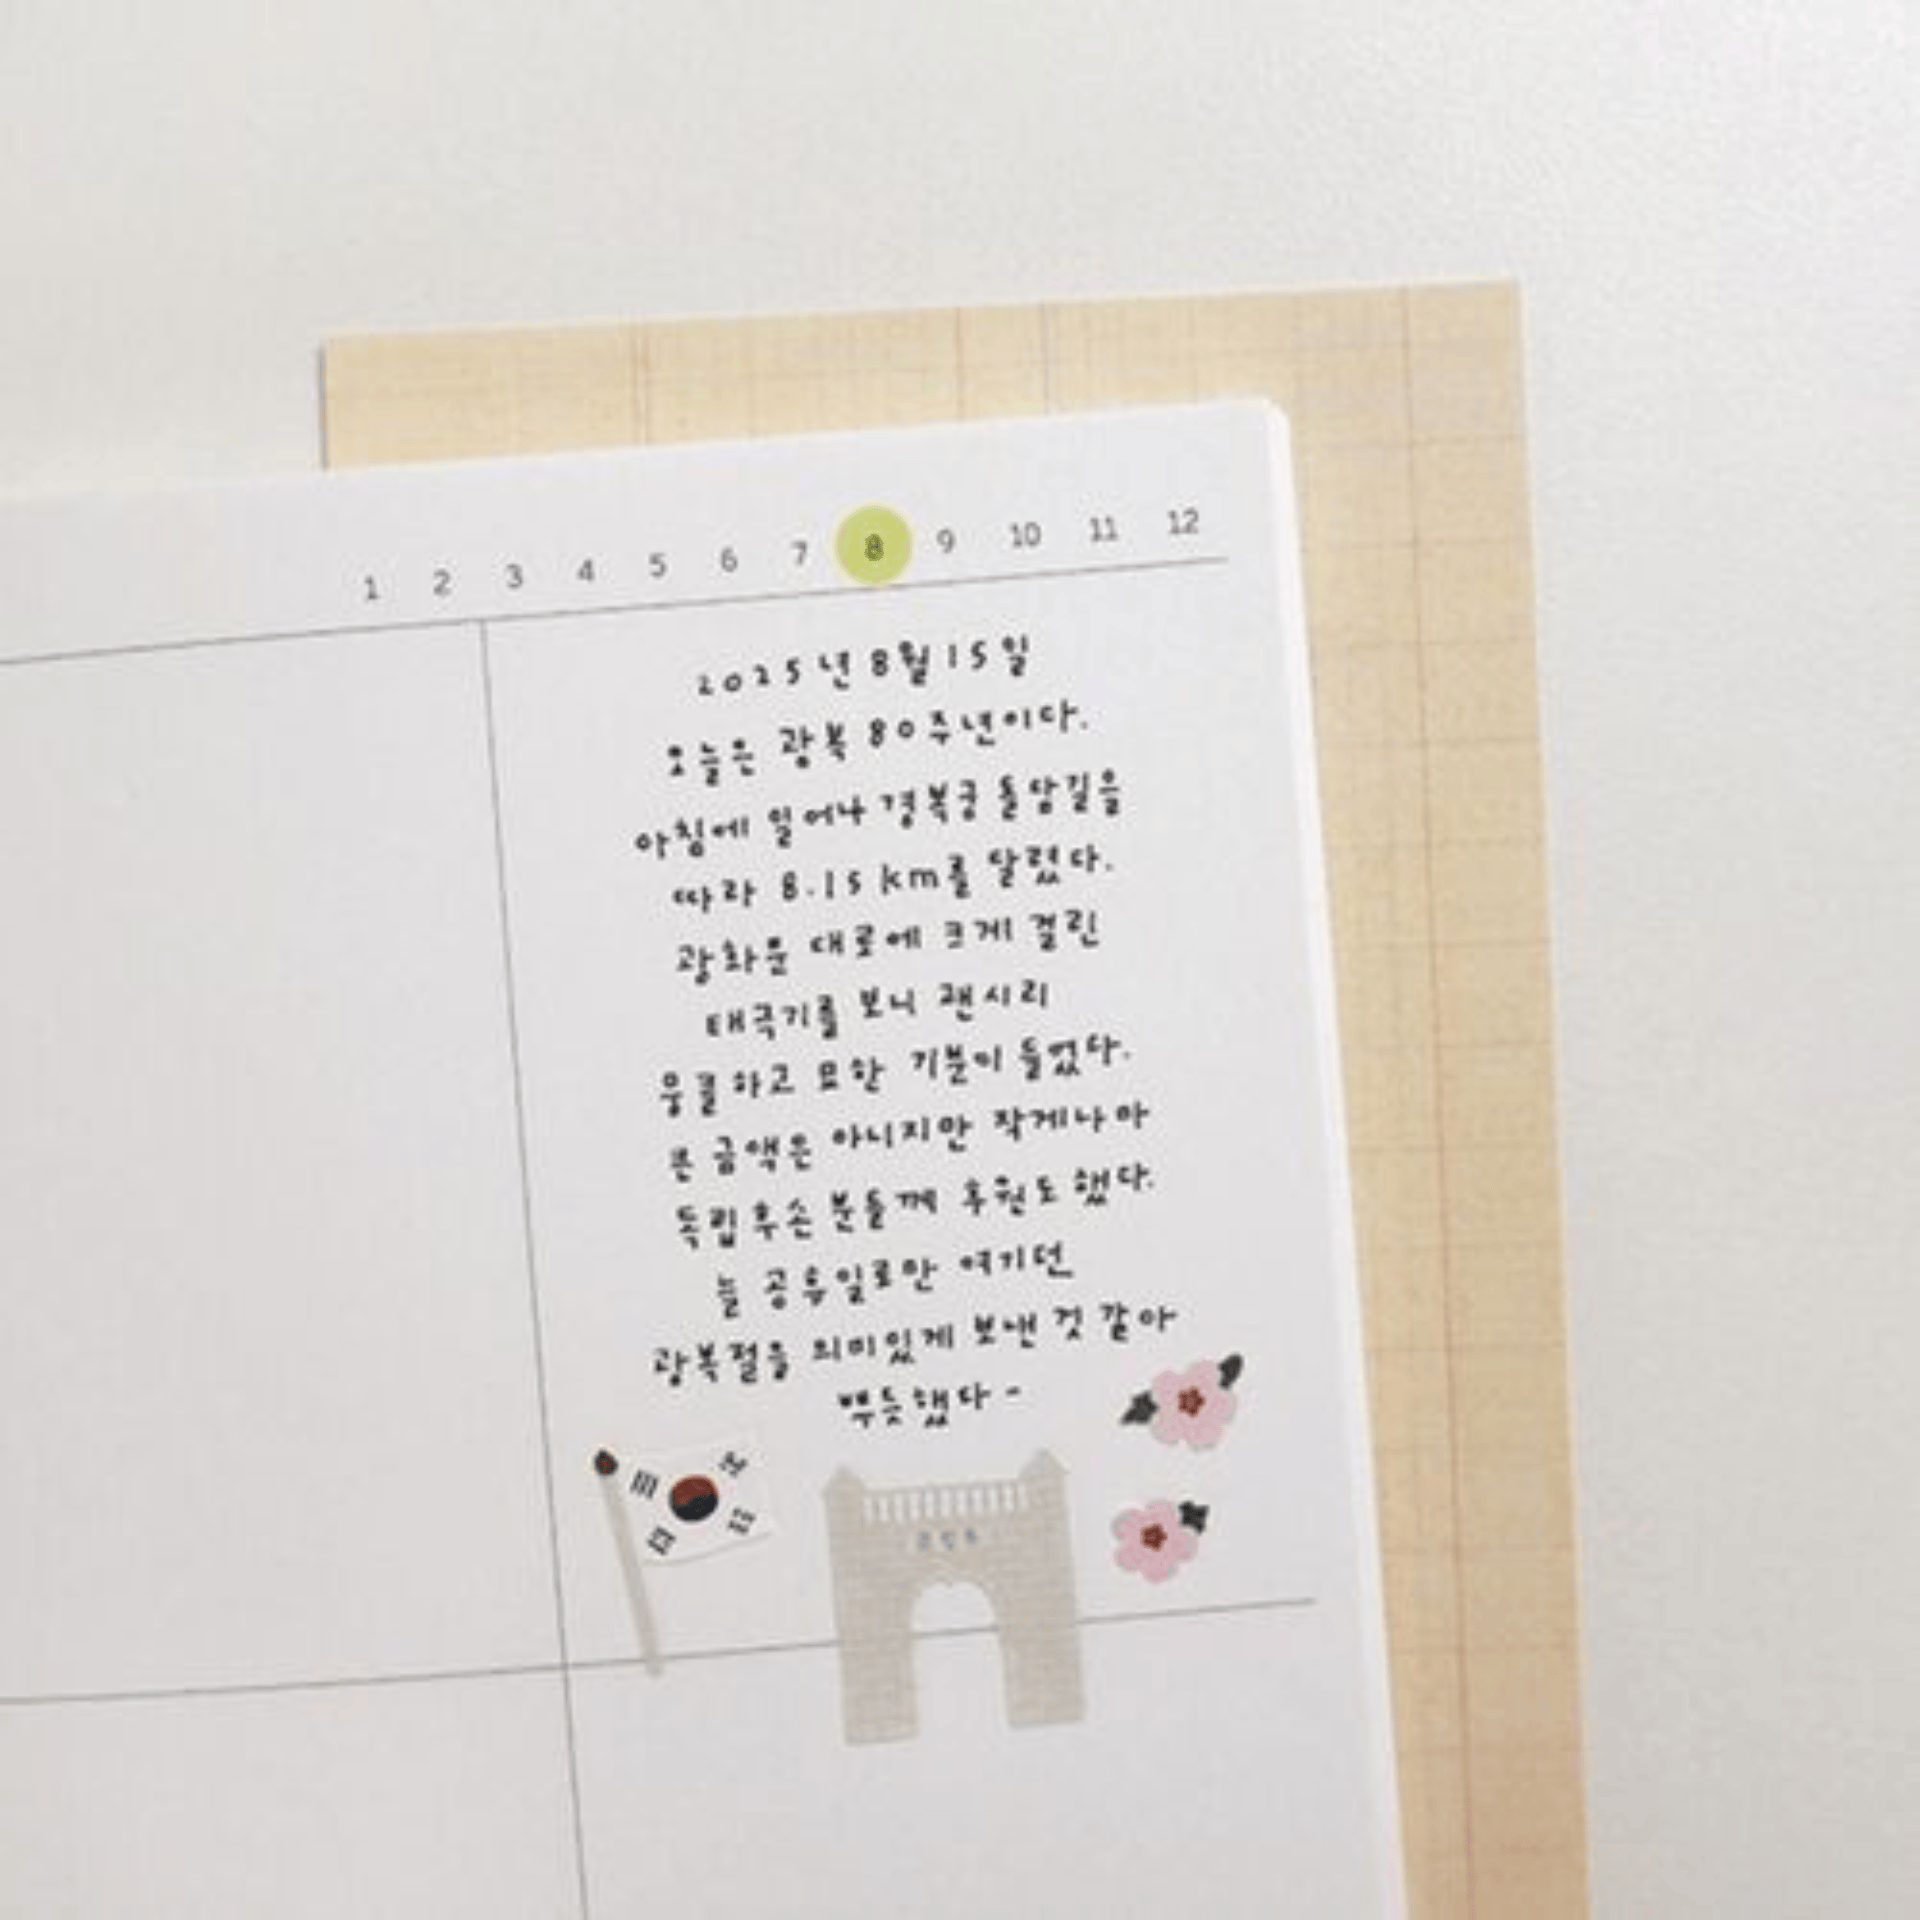 1 2 3 4 5 6 7 8 9 10 11 12
2025년 8월 15일
오늘은 광복 80주년이다.
아침에 일어나 경복궁 돌담길을
따라 8.15km를 달렸다.
광화문 대로에 크게 걸린
태극기를 보니 괜시리
뭉클하고 묘한 기분이 들었다.
큰 금액은 아니지만 작게나마
독립후손분들께 후원도 했다.
늘 공휴일로만 여기던
광복절을 의미있게 보낸 것 같아
뿌듯했다-
독립문